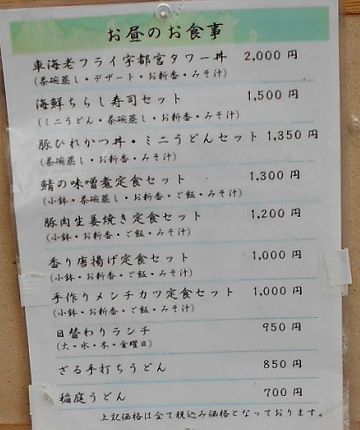 お昼のお食事
車海老フライ宇都宮タワー丼 2,000 円
(茶碗蒸し・デザート・お新香・みそ汁)
海鮮ちらし寿司セット 1,500 円
(ミニうどん・茶碗蒸し・お新香・みそ汁)
豚ひれかつ丼・ミニうどんセット 1,350 円
(茶碗蒸し・お新香・みそ汁)
鯖の味噌煮定食セット 1,300 円
(小鉢・茶碗蒸し・お新香・ご飯・みそ汁)
豚肉生姜焼き定食セット 1,200 円
(小鉢・お新香・ご飯・みそ汁)
香り唐揚げ定食セット 1,000 円
(小鉢・お新香・ご飯・みそ汁)
手作りメンチカツ定食セット 1,000 円
(小鉢・お新香・ご飯・みそ汁)
日替わりランチ 950 円
(火・水・木・金曜日)
ざる手打ちうどん 850 円
稲庭うどん 700 円
上記価格は全て税込み価格となっております。